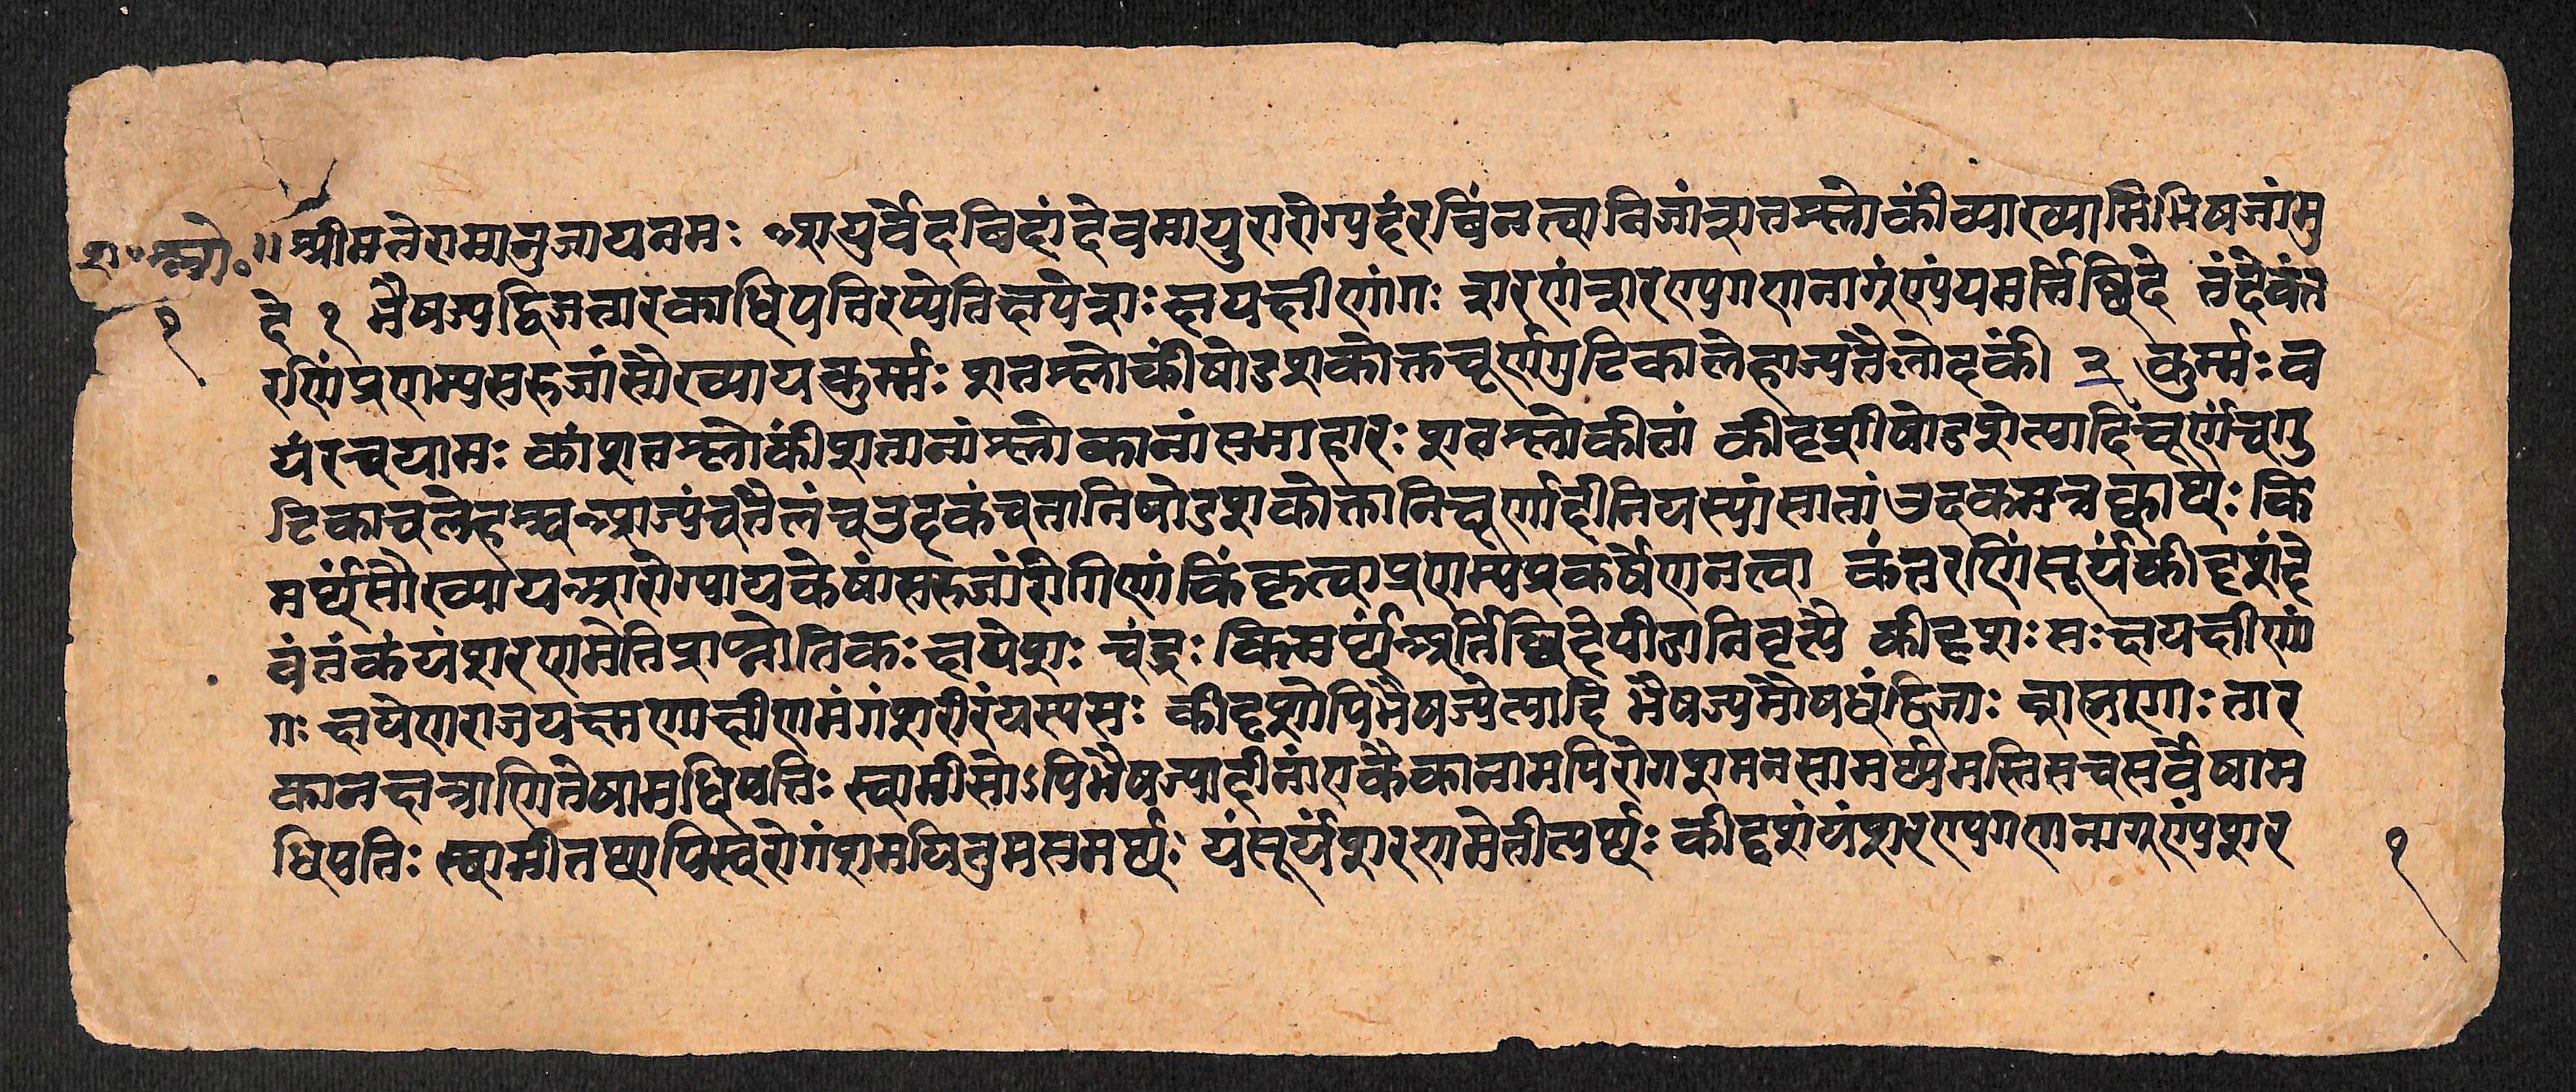 श॰श्लो॰ ॥ श्रीमतेरामानुजायनमः आयुर्वेदविदांदेवमायुरारोग्यदंरविंनत्वानिजांशतश्लोकींव्याख्यामिभिषजांमु
१ दे १ भैषज्यद्विजतारकाधिपतिरप्येतिक्षपेशः क्षयक्षीणांगः शरणंशरण्यगणनागंण्यंयमर्त्तिछिदे तंदेवंत
रणिंप्रणम्यसरुजांसौख्यायकुर्म्मः शतश्लोकींषोडशकोक्तचूर्णगुटिकालेहाज्यतैलोदकीं २ कुर्म्मः व
यंरचयामः कांशतश्लोकींशतानांश्लोकानांसमाहारः शतश्लोकीतां कीदृशींषोडशेत्यादिंचूर्णंचगु
टिकाचलेहश्चआज्यंचतैलंचउदकंचतानिषोडशकोक्तानिचूर्णादीनियस्यांसातांउदकमत्रक्वाथः कि
मर्थंसौख्यायआरोग्यायकेषांसरुजांरोगिणांकिंकृत्वाप्रणम्यप्रकर्षेणनत्वा कंतरणिंसूर्यंकीदृशंदे
वंतंकंयंशरणमेतिप्राप्नोतिकः क्षपेशः चंद्रः किमर्थंअर्त्तिछिदेपीडानिवृत्यै कीदृशः सः क्षयक्षीणां
गः क्षयेणराजयक्ष्मणाक्षीणमंगंशरीरंयस्यसः कीदृशोपिभैषज्येत्यादि भैषज्यमौषधंद्विजाः ब्राह्मणाः तार
कानक्षत्राणितेषामधिपतिः स्वामीसोऽपिभैषज्यादीनांएकैकानामपिरोगशमनसामर्थ्यमस्तिसचसर्वेषाम
धिपतिः स्वामीतथापिस्वरोगंशमयितुमसमर्थः यंसूर्यंशरणमेतीत्यर्थः कीदृशंयंशरण्यगणनागण्यंशर १